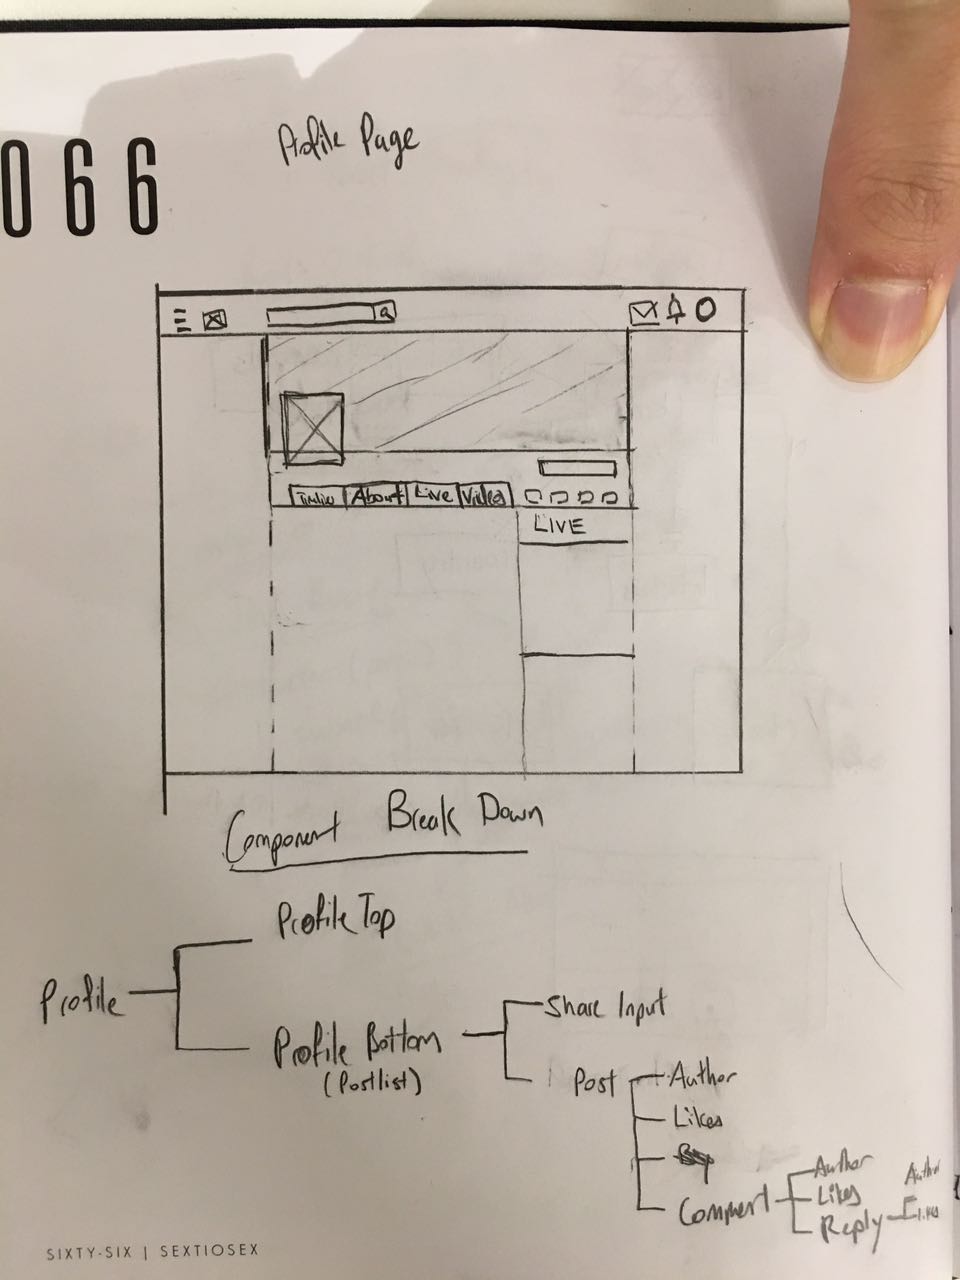 066
Profile Page
Timline About Live Video
LIVE
Component Break Down
Profile Top
Profile
Share Input
Profile Bottom
(Postlist)
Post
Author
Likes
Comment
Author
Likes
Reply
Author
likes
SIXTY-SIX | SEXTIOSEX